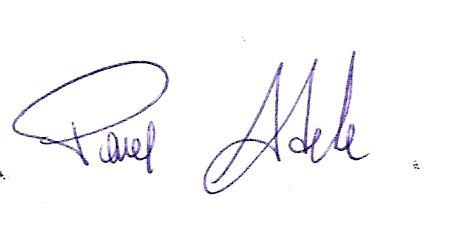 Pavel Adela